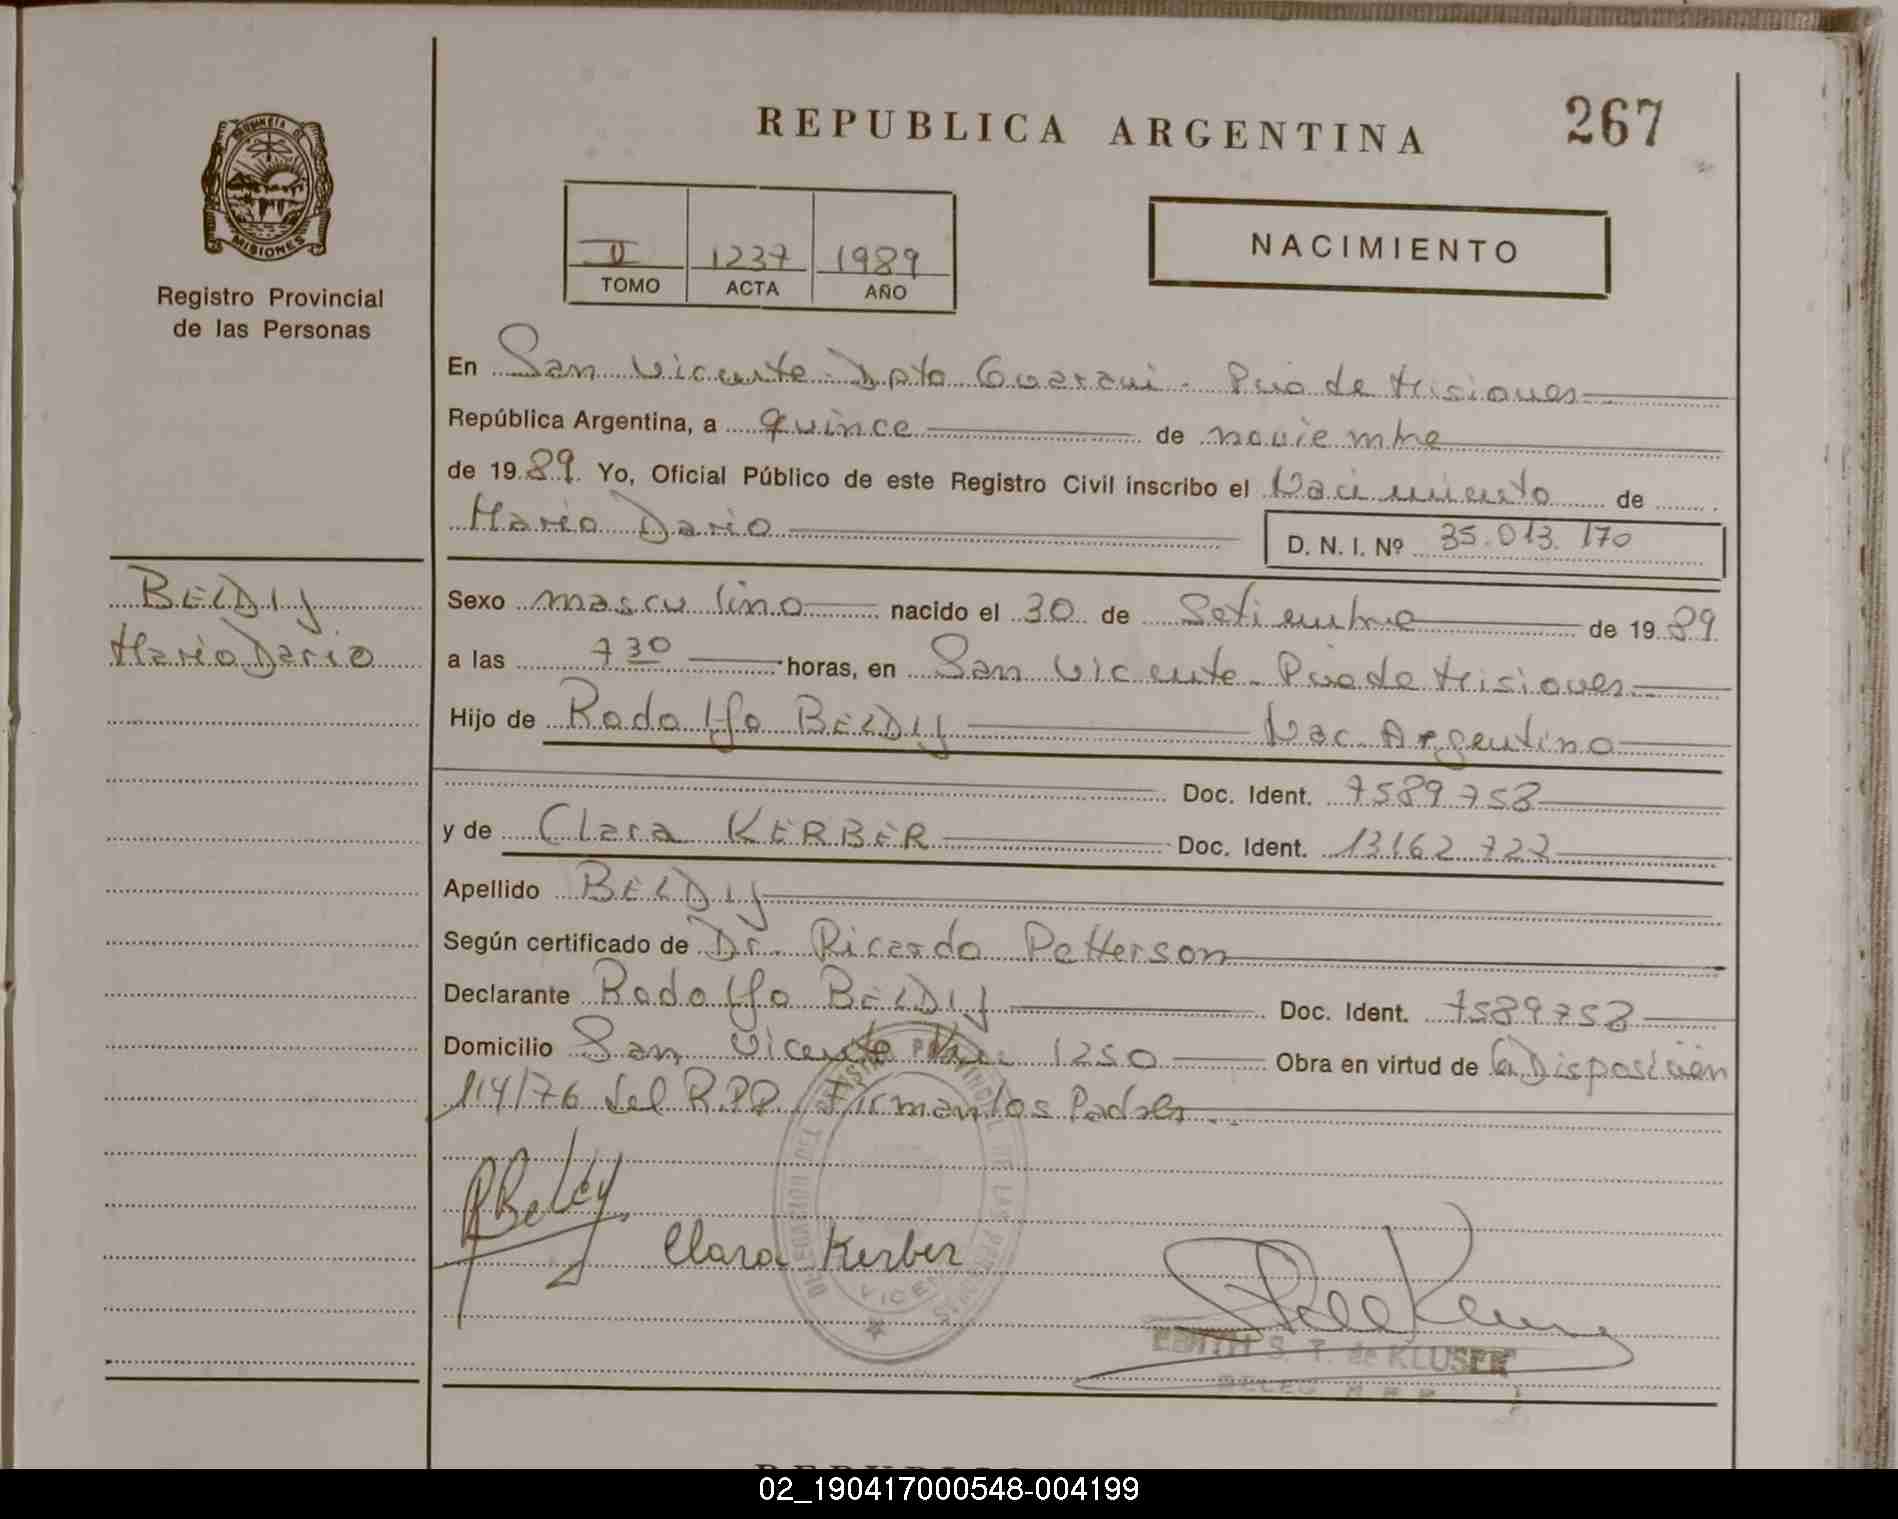 REPUBLICA ARGENTINA
267
PROVINCIA DE
MISIONES
Registro Provincial
de las Personas
II 1237 1989
TOMO ACTA AÑO
NACIMIENTO
En San Vicente Dpto Guarani - Pcia de Misiones
República Argentina, a quince de noviembre
de 1989. Yo, Oficial Público de este Registro Civil inscribo el Nacimiento de
Mario Dario
D. N. I. Nº 35.013.170
BELDIJ
Mario Dario
Sexo masculino nacido el 30 de Setiembre de 1989
a las 7 30 horas, en San Vicente Pcia de Misiones
Hijo de Rodolfo BELDIJ Nac Argentino
Doc. Ident. 7589758
y de Clara KERBER Doc. Ident. 13162722
Apellido BELDIJ
Según certificado de Dr. Ricardo Petterson
Declarante Rodolfo BELDIJ Doc. Ident. 7589758
Domicilio San Vicente 1250 Obra en virtud de la Disposición
114/76 del R.P.P. Firman los Padres
Clara Kerber
EDITH S. T. de KLUSEK
02_190417000548-004199